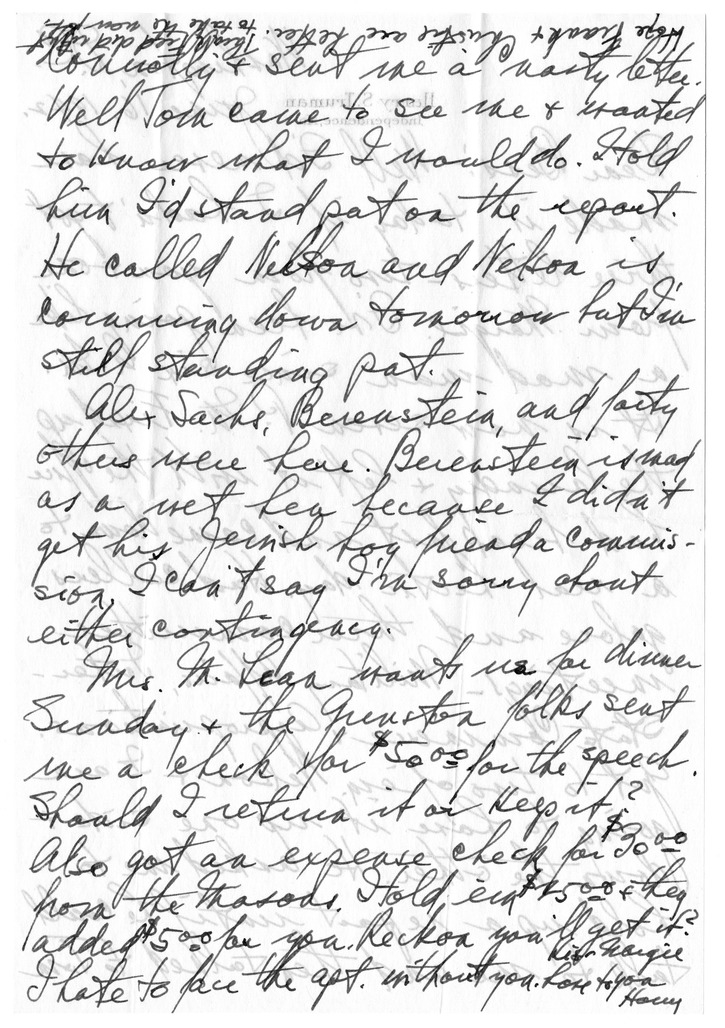 Hope Frank & Christine are better. Think Fred did right
to take the money.
Connolly & sent me a nasty letter.
Well Tom came to see me & wanted
to know what I would do. I told
him I'd stand pat on the report.
He called Nelson and Nelson is
comming down tomorrow but I'm
still standing pat.
Alex Sachs, Berenstein, and forty
others were here. Berenstein is mad
as a wet hen because I didn't
get his Jewish boy friend a commis-
sion. I can't say I'm sorry about
either contingency.
Mrs. McLean wants us for dinner
Sunday & the folks sent
me a check for $50 00 for the speech.
Should I return it or keep it?
Also got an expense check for $30 00
from the Masons. I told 'em $45 00 & they
added $5 00 for you. Reckon you'll get it?
I hate to face the apt. without you. Kiss Margie
Love to you
Harry
Harry S. Truman
Independence,